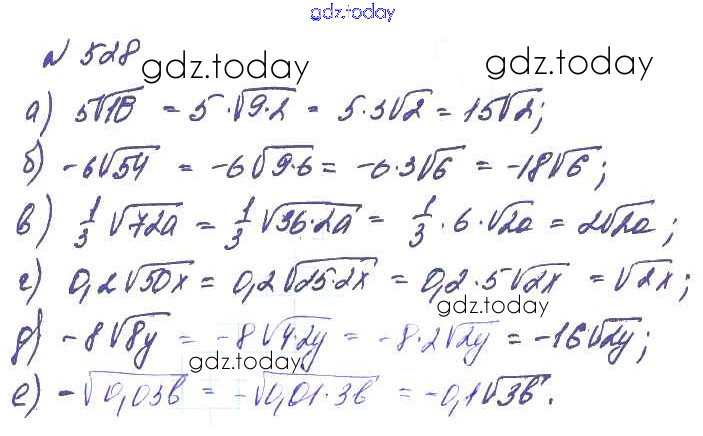 gdz.today
№ 528
gdz.today gdz.today
а) 5√18 = 5·√9·2 = 5·3√2 = 15√2;
б) -6√54 = -6√9·6 = -6·3√6 = -18√6;
в) 1/3 √72a = 1/3 √36·2a = 1/3 · 6 · √2a = 2√2a;
г) 0,2√50x = 0,2√25·2x = 0,2·5√2x = √2x;
gdz.today
д) -8√8y = -8√4·2y = -8·2√2y = -16√2y;
gdz.today
е) -√0,03b = -√0,01·3b = -0,1√3b.